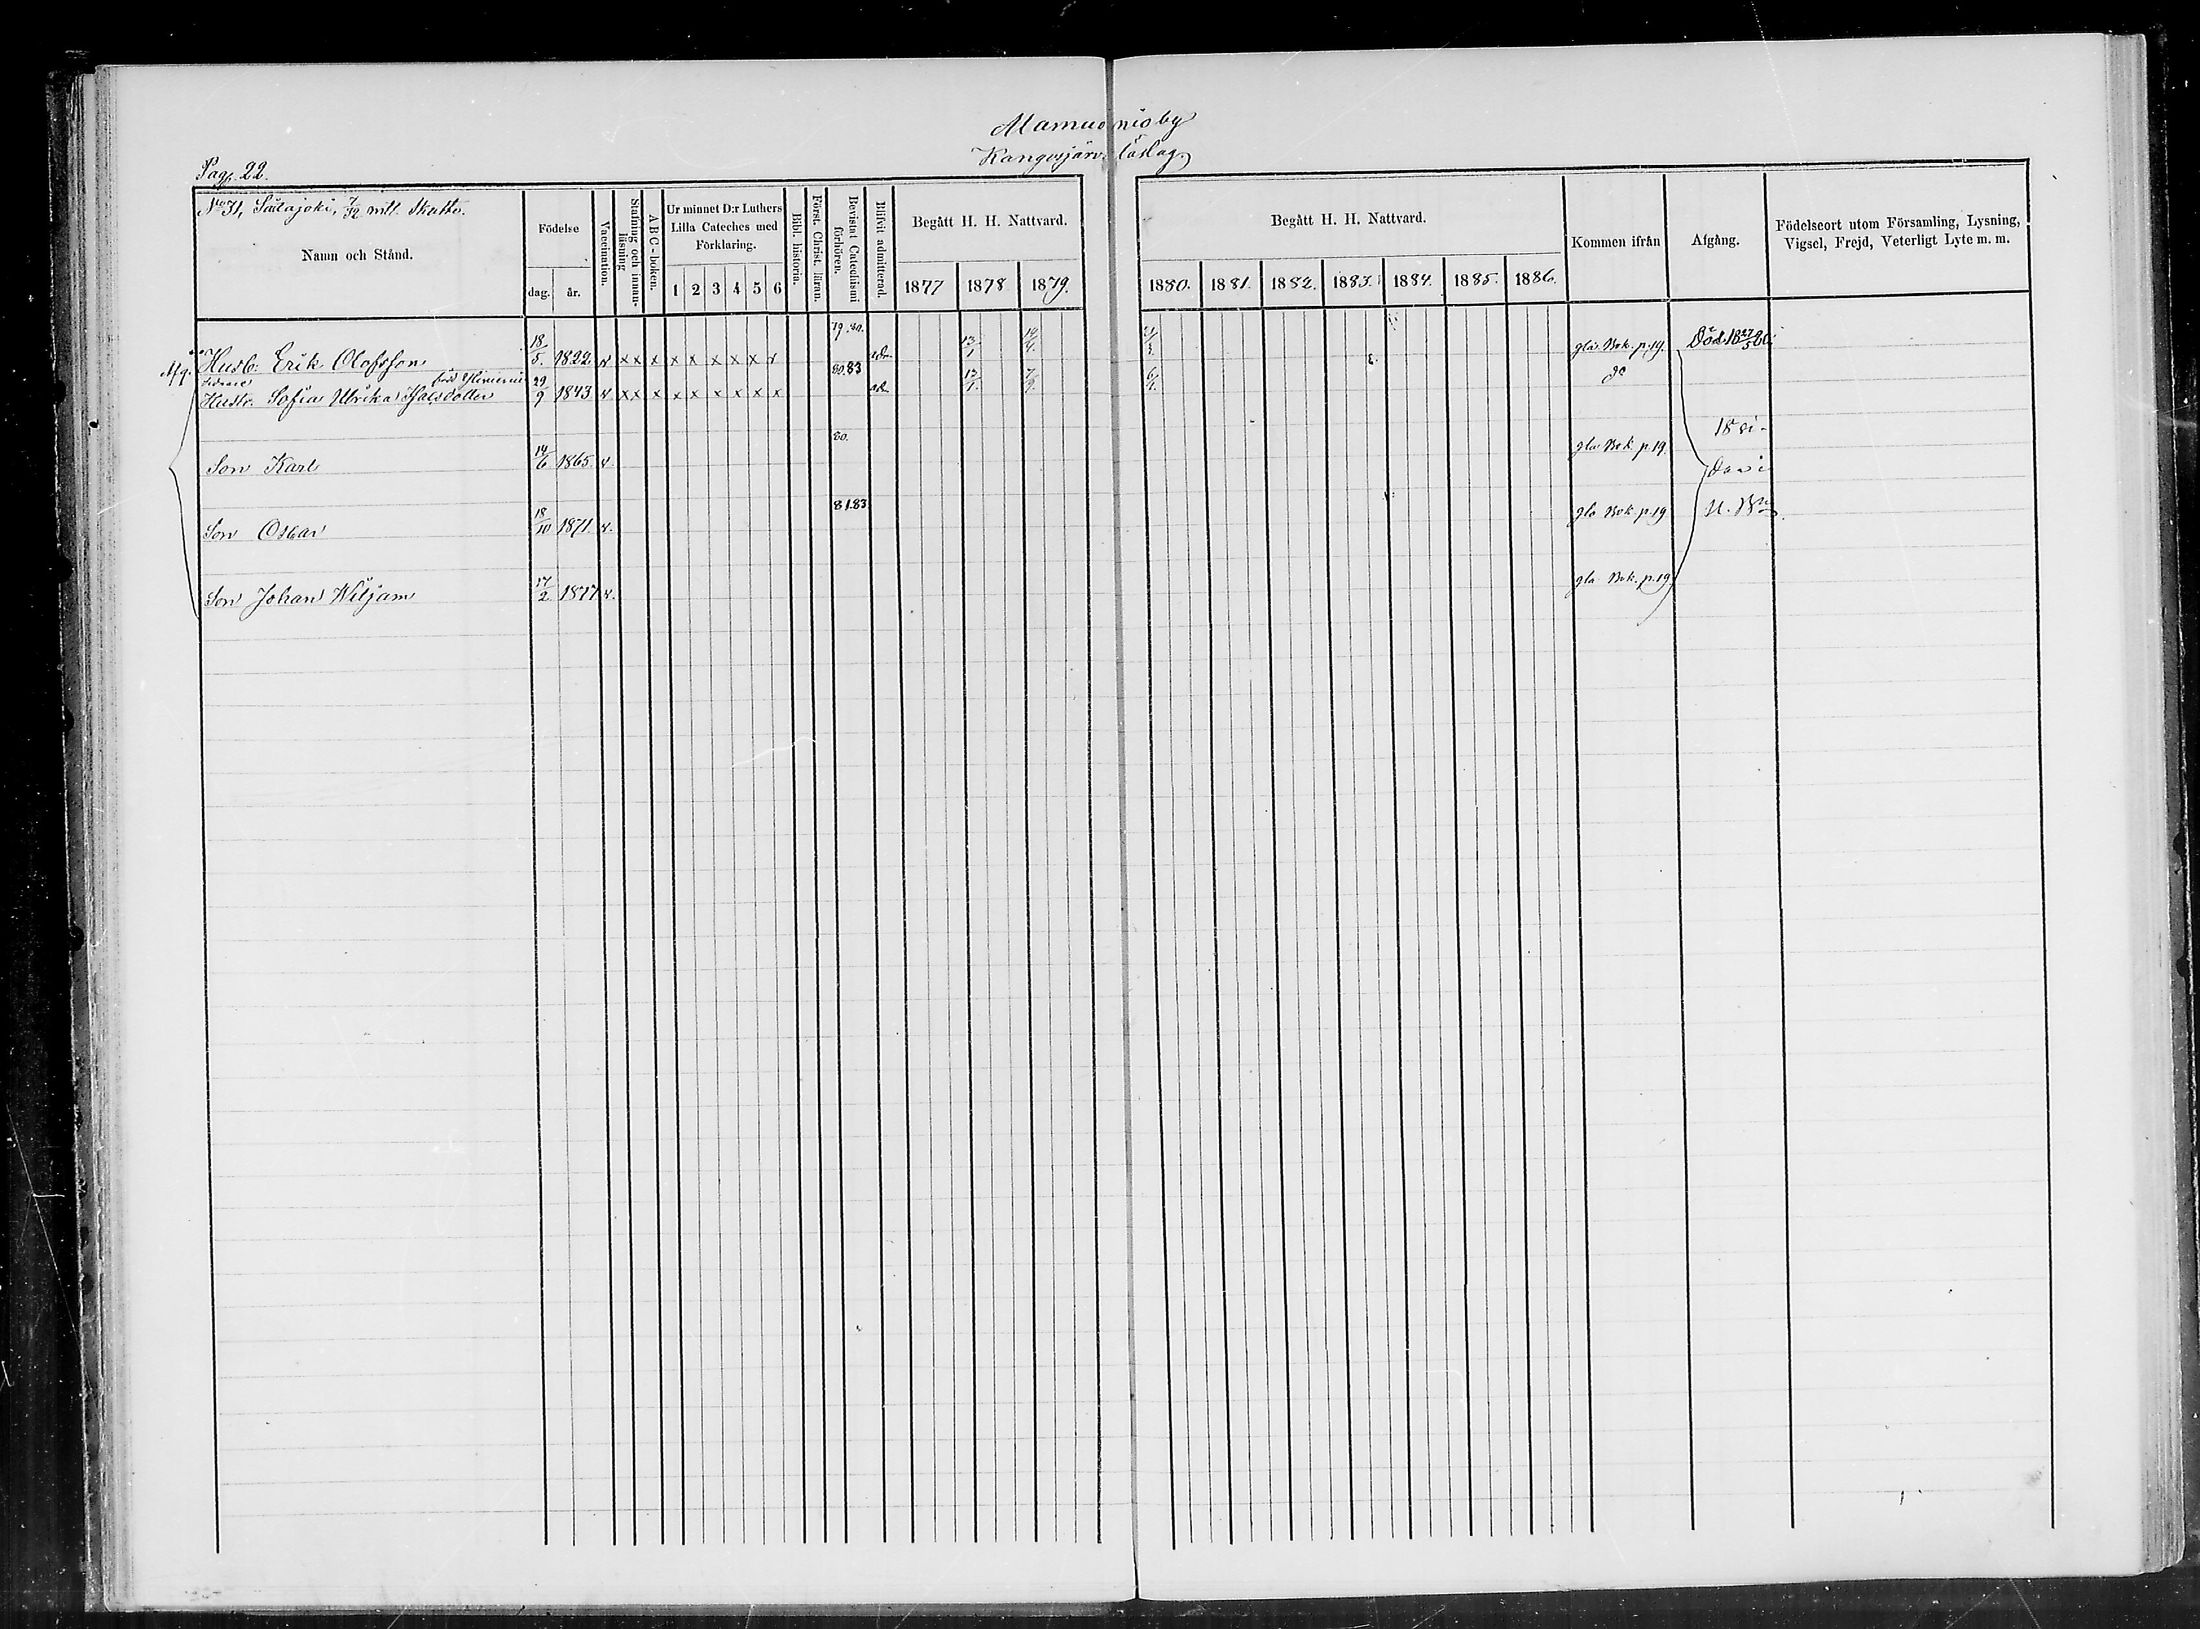 Mamuonisby
Kangosjärvi låslag.
Pag. 22.
No 31, Saitajoki, 7/12 mtl. Skatte.
Namn och Stånd.
Födelse
dag. år.
Vaccination.
Stafning och innan-
läsning
A B C-boken.
Ur minnet D:r Luthers
Lilla Cateches med
Förklaring.
1 2 3 4 5 6
Bibl. historia.
Först. Christ. läran.
Bevistat Catechismi
förhören.
Blifvit admitterad.
Begått H. H. Nattvard.
1877 1878 1879.
Begått H. H. Nattvard.
1880. 1881. 1882. 1883. 1884. 1885. 1886.
Kommen ifrån
Afgång.
Födelseort utom Församling, Lysning,
Vigsel, Frejd, Veterligt Lyte m. m.
Husb. Erik Olofsson 18/5. 1822 v x x x x x x x x x 79.80. 13/1 14/4. 21/3. gla Bok. p. 19. Död 18 27/5 80.
Hustr. Sofia Ulrika 29/9 1843 v x x x x x x x x x 80.83 13/1. 7/9. 6/1. do
Son Karl 14/6 1865. v. 80. gla Bok. p. 19.
Son Oskar 18/10 1871. v. 81.83 gla Bok. p. 19
Son Johan Wiljam 17/2 1877 v. gla Bok. p. 19